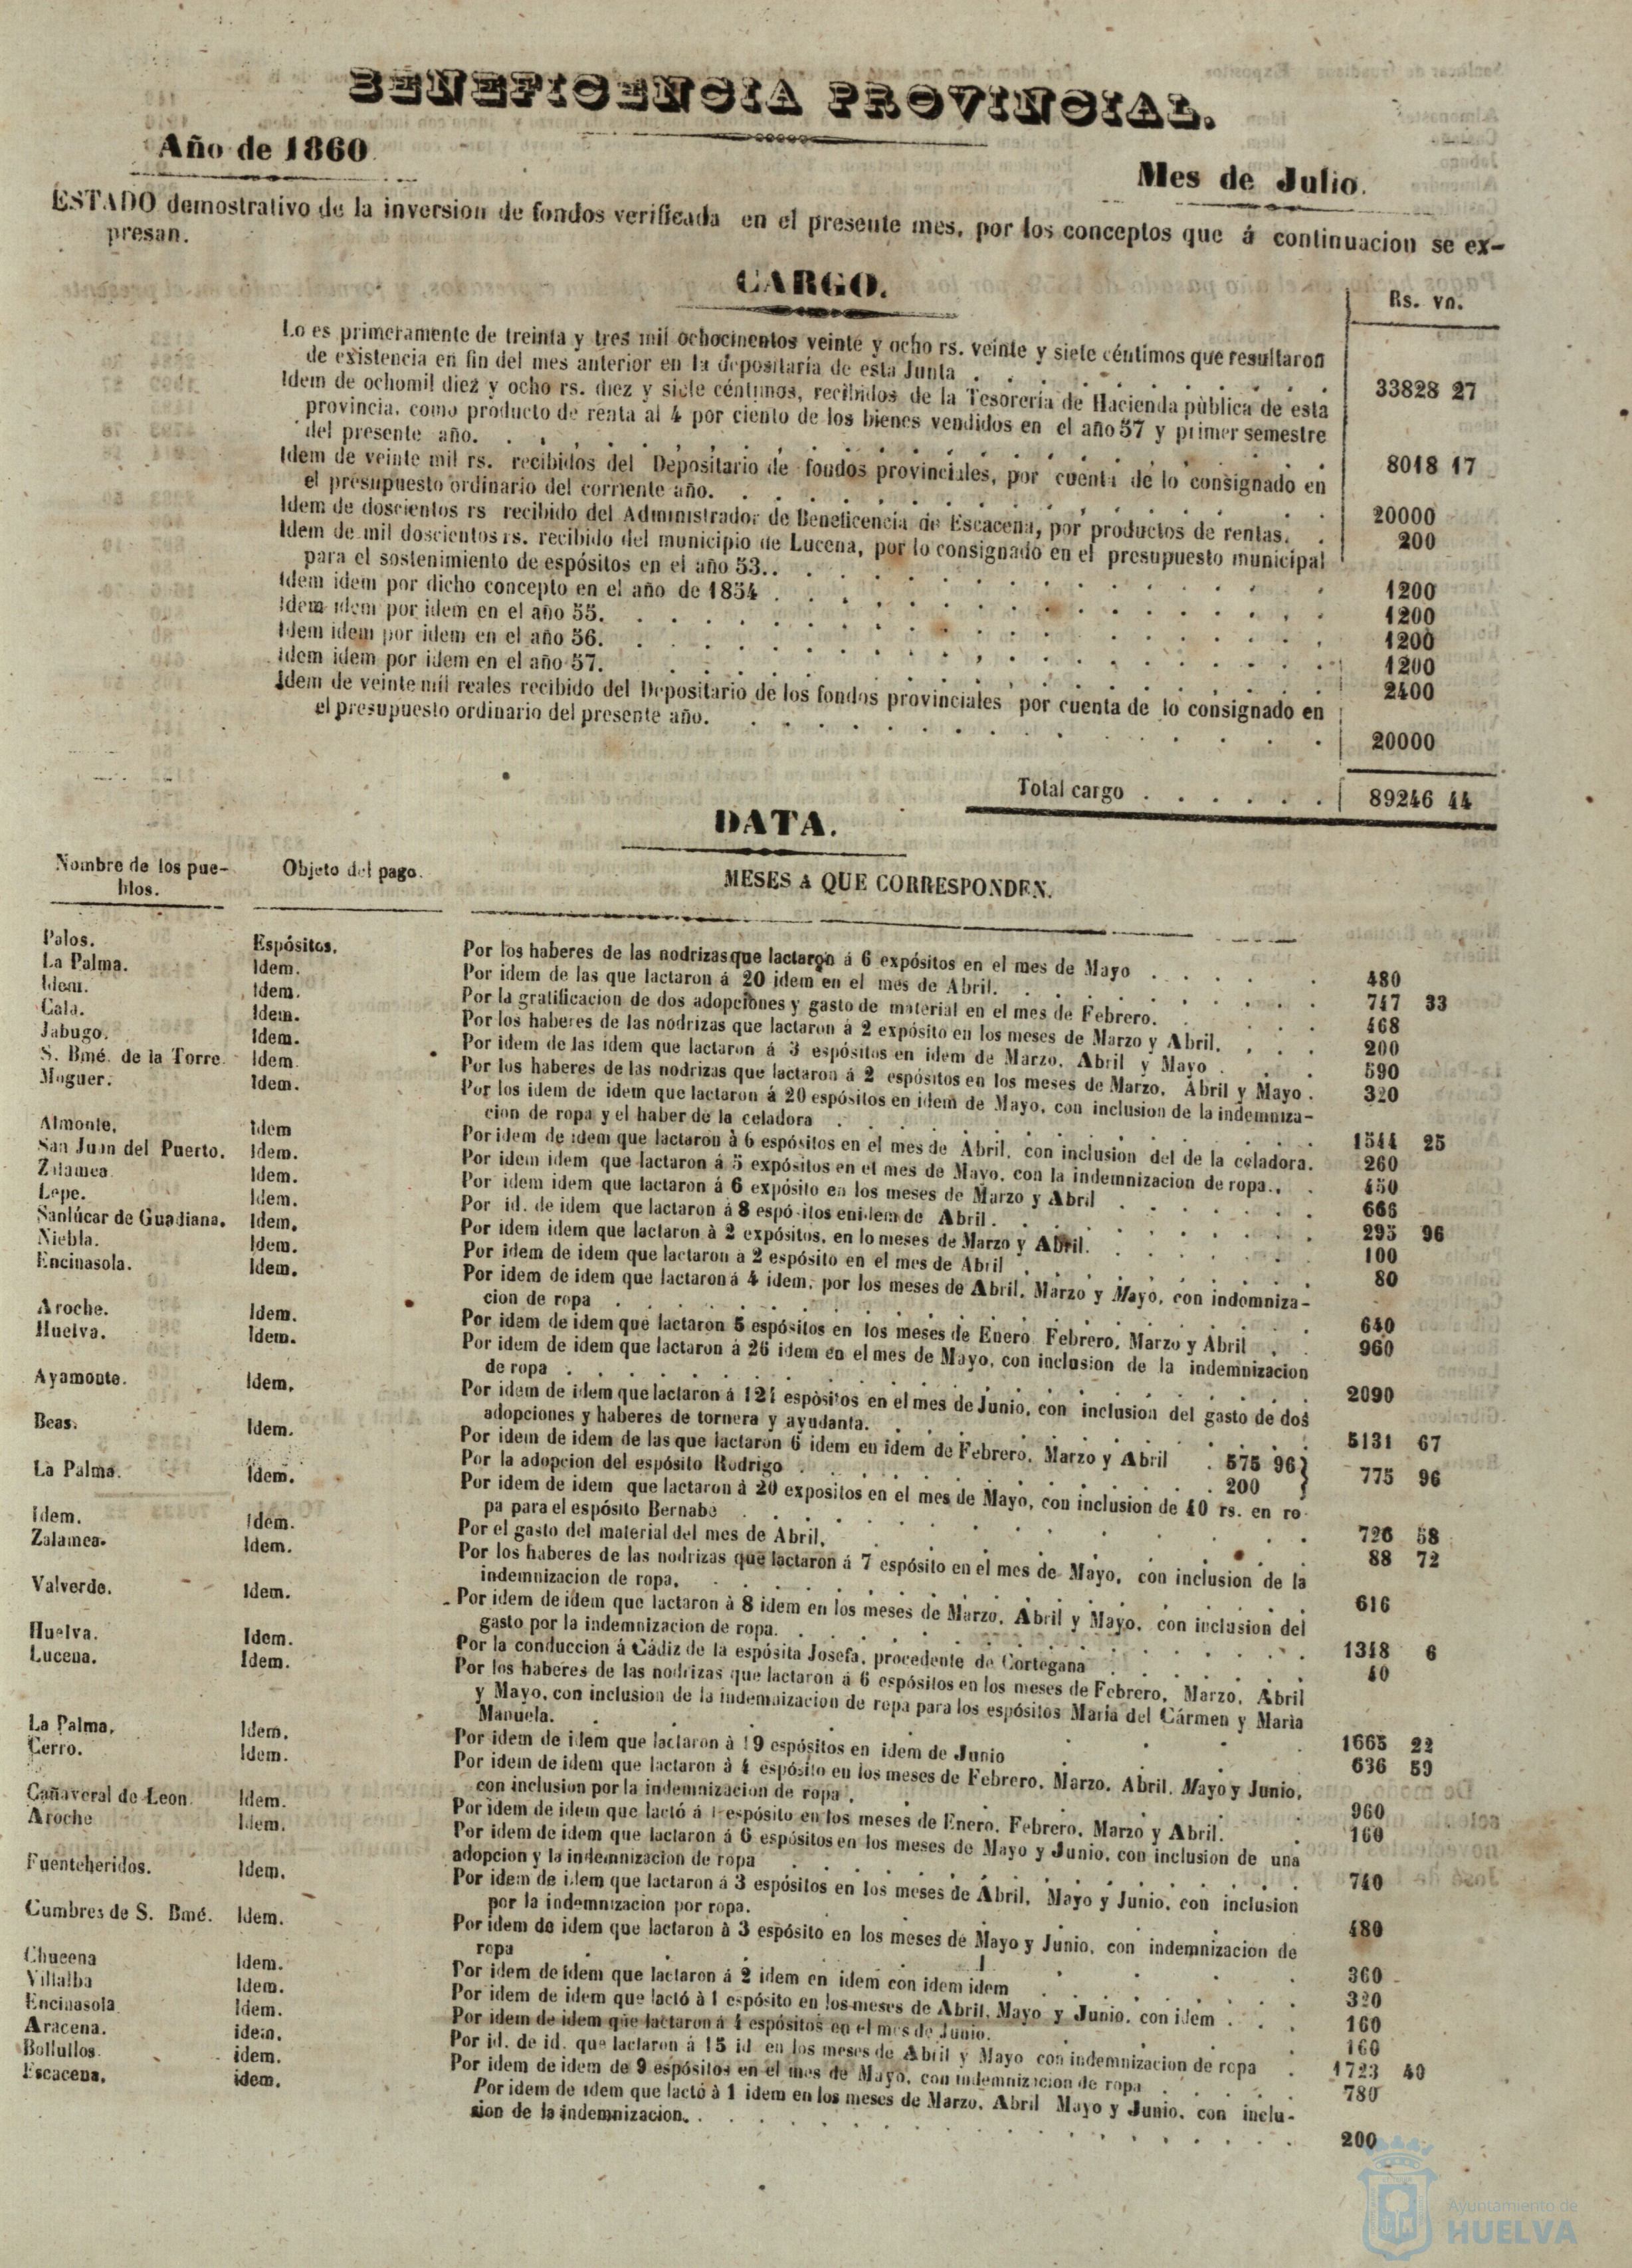 BENEFICENCIA PROVINCIAL.
Año de 1860
Mes de Julio.
ESTADO demostrativo de la inversion de fondos verificada en el presente mes, por los conceptos que á continuacion se ex-
presan.
CARGO.
Rs. vn.
Lo es primeramente de treinta y tres mil ochocinentos veinte y ocho rs. veinte y siete céntimos que resultaron
de existencia en fin del mes anterior en la depositaría de esta Junta . . . 33828 27
Idem de ochomil diez y ocho rs. diez y siete céntimos, recibidos de la Tesorería de Hacienda pùblica de esta
provincia, como producto de renta al 4 por ciento de los bienes vendidos en el año 57 y primer semestre
del presente año. . . . 8018 17
Idem de veinte mil rs. recibidos del Depositario de fondos provinciales, por cuenta de lo consignado en
el presupuesto ordinario del corriente año. . . . 20000
Idem de doscientos rs recibido del Administrador de Beneficencia de Escacena, por productos de rentas. . 200
Idem de mil doscientos rs. recibido del municipio de Lucena, por lo consignado en el presupuesto municipal
para el sostenimiento de espósitos en el año 53. . . . 1200
Idem idem por dicho concepto en el año de 1854 . . . 1200
Idem idem por idem en el año 55. . . . 1200
Idem idem por idem en el año 56. . . . 1200
Idem idem por idem en el año 57. . . . 2400
Idem de veinte mil reales recibido del Depositario de los fondos provinciales por cuenta de lo consignado en
el presupuesto ordinario del presente año. . . . 20000
Total cargo . . . . . . 89246 44
DATA.
Nombre de los pue-
blos.
Objeto del pago.
MESES A QUE CORRESPONDEN.
Palos. Espósitos. Por los haberes de las nodrizas que lactaron á 6 expósitos en el mes de Mayo . . . 480
La Palma. Idem. Por idem de las que lactaron á 20 idem en el mes de Abril. . . . 747 33
Idem. Idem. Por la gratificacion de dos adopciones y gasto de material en el mes de Febrero. . . . 468
Cala. Idem. Por los haberes de las nodrizas que lactaron á 2 expósito en los meses de Marzo y Abril. . . . 200
Jabugo. Idem. Por idem de las idem que lactaron á 3 espósitos en idem de Marzo, Abril y Mayo . 590
S. Bmé. de la Torre Idem. Por los haberes de las nodrizas que lactaron á 2 espósitos en los meses de Marzo, Abril y Mayo . 320
Moguer. Idem. Por los idem de idem que lactaron á 20 espósitos en idem de Mayo, con inclusion de la indemniza-
cion de ropa y el haber de la celadora . . . 1544 25
Almonte. Idem Por idem de idem que lactaron à 6 espósitos en el mes de Abril, con inclusion del de la celadora. 260
San Juan del Puerto. Idem. Por idem idem que lactaron á 5 expósitos en el mes de Mayo, con la indemnizacion de ropa. . . 450
Zalamea Idem. Por idem idem que lactaron á 6 expósito en los meses de Marzo y Abril . . . 666
Lepe. Idem. Por id. de idem que lactaron á 8 espósitos en idem de Abril. . . . 295 96
Sanlúcar de Guadiana. Idem. Por idem idem que lactaron à 2 expósitos, en lo meses de Marzo y Abril. . . . 100
Niebla. Idem. Por idem de idem que lactaron à 2 espósito en el mes de Abril . . . 80
Encinasola. Idem. Por idem de idem que lactaron á 4 idem, por los meses de Abril, Marzo y Mayo, con indomniza-
cion de ropa . . . 640
Aroche. Idem. Por idem de idem que lactaron 5 espósitos en los meses de Enero Febrero, Marzo y Abril . . 960
Huelva. Idem. Por idem de idem que lactaron à 26 idem en el mes de Mayo, con inclusion de la indemnizacion
de ropa . . . 2090
Ayamonte. Idem. Por idem de idem que lactaron á 121 espòsitos en el mes de Junio, con inclusion del gasto de dos
adopciones y haberes de tornera y ayudanta. . . . 5131 67
Beas. Idem. Por idem de idem de las que lactaron 6 idem en idem de Febrero, Marzo y Abril . 575 96
Por la adopcion del espósito Rodrigo . . . 200 } 775 96
La Palma. Idem. Por idem de idem que lactaron á 20 expositos en el mes de Mayo, con inclusion de 40 rs. en ro-
pa para el espósito Bernabé . . . 726 58
Idem. Idem. Por el gasto del material del mes de Abril. . . . 88 72
Zalamea. Idem. Por los haberes de las nodrizas que lactaron á 7 espósito en el mes de Mayo, con inclusion de la
indemnizacion de ropa. . . . 616
Valverde. Idem. Por idem de idem que lactaron à 8 idem en los meses de Marzo, Abril y Mayo, con inclusion del
gasto por la indemnizacion de ropa. . . . 1318 6
Huelva. Idem. Por la conduccion á Cádiz de la espósita Josefa, procedente de Cortegana . . . 40
Lucena. Idem. Por los haberes de las nodrizas que lactaron á 6 espósitos en los meses de Febrero, Marzo, Abril
y Mayo, con inclusion de la indemnizacion de ropa para los espósitos María del Cármen y Maria
Manuela. . . . 1665 22
La Palma. Idem. Por idem de idem que lactaron à 19 espósitos en idem de Junio . . . 636 59
Cerro. Idem. Por idem de idem que lactaron à 4 espósito en los meses de Febrero, Marzo, Abril, Mayo y Junio,
con inclusion por la indemnizacion de ropa . . . 960
Cañaveral de Leon Idem. Por idem de idem que lactó á 1 espósito en los meses de Enero, Febrero, Marzo y Abril. . 160
Aroche Idem. Por idem de idem que lactaron á 6 espósitos en los meses de Mayo y Junio, con inclusion de una
adopcion y la indemnizacion de ropa . . . 740
Fuenteheridos. Idem. Por idem de idem que lactaron á 3 espósitos en los meses de Abril, Mayo y Junio, con inclusion
por la indemnizacion por ropa. . . . 480
Cumbres de S. Bmé. Idem. Por idem de idem que lactaron à 3 espósito en los meses de Mayo y Junio, con indemnizacion de
ropa . . . 360
Chucena Idem. Por idem de idem que lactaron á 2 idem en idem con idem idem . . . 320
Villalba Idem. Por idem de idem que lactó à 1 espósito en los meses de Abril, Mayo y Junio, con idem . . . 160
Encinasola Idem. Por idem de idem que lactaron á 4 espósitos en el mes de Junio. . . . 160
Aracena. idem. Por id. de id. que lactaron á 15 id en los meses de Abril y Mayo con indemnizacion de ropa . 1723 40
Bollullos. idem. Por idem de idem de 9 espósitos en el mes de Mayo, con indemnizacion de ropa . . . 780
Escacena. idem. Por idem de idem que lactó à 1 idem en los meses de Marzo, Abril Mayo y Junio, con inclu-
sion de la indemnizacion. . . . 200
Ayuntamiento de
HUELVA